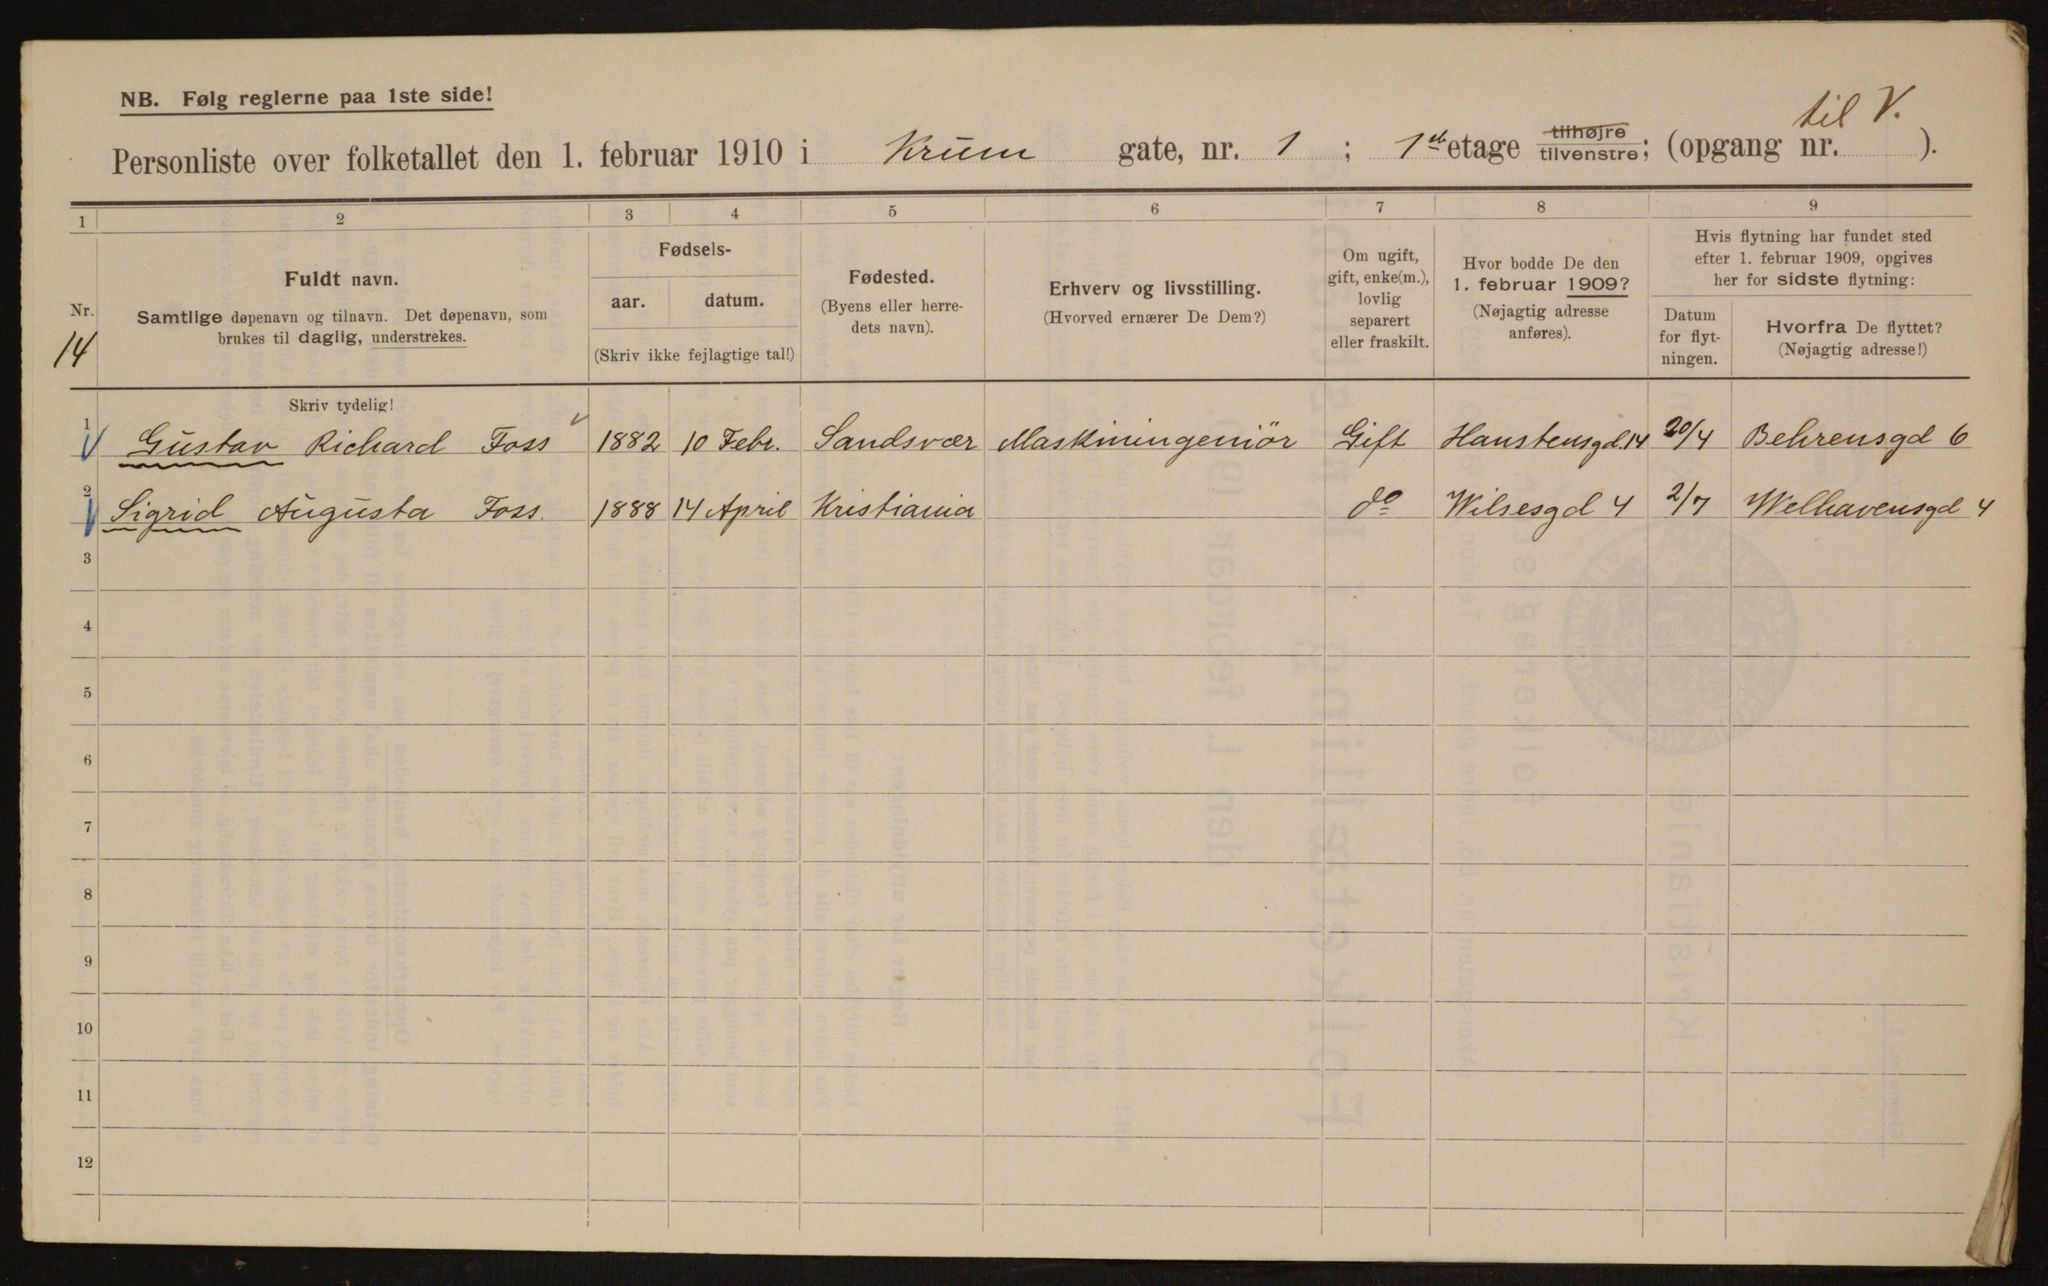 NB. Følg reglerne paa 1ste side!
til V.
Personliste over folketallet den 1. februar 1910 i Krum gate, nr. 1 ; 1ste etage tilhøjre tilvenstre; (opgang nr. ).
1 2 3 4 5 6 7 8 9
Nr.
14
Fuldt navn.
Samtlige døpenavn og tilnavn. Det døpenavn, som
brukes til daglig, understrekes.
Fødsels-
aar. datum.
(Skriv ikke fejlagtige tal!)
Fødested.
(Byens eller herre-
dets navn).
Erhverv og livsstilling.
(Hvorved ernærer De Dem?)
Om ugift,
gift, enke(m.),
lovlig
separert
eller fraskilt.
Hvor bodde De den
1. februar 1909?
(Nøjagtig adresse
anføres).
Hvis flytning har fundet sted
efter 1. februar 1909, opgives
her for sidste flytning:
Datum
for flyt-
ningen.
Hvorfra De flyttet?
(Nøjagtig adresse!)
Skriv tydelig!
1 Gustav Richard Foss 1882 10 Febr. Sandsvær Maskiningeniør Gift Hanstensgd. 14 20/4 Behrensgd 6
2 Sigrid Augusta Foss. 1888 14 April Kristiania do Wilsesgd 4 2/7 Welhavensgd 4
3
4
5
6
7
8
9
10
11
12